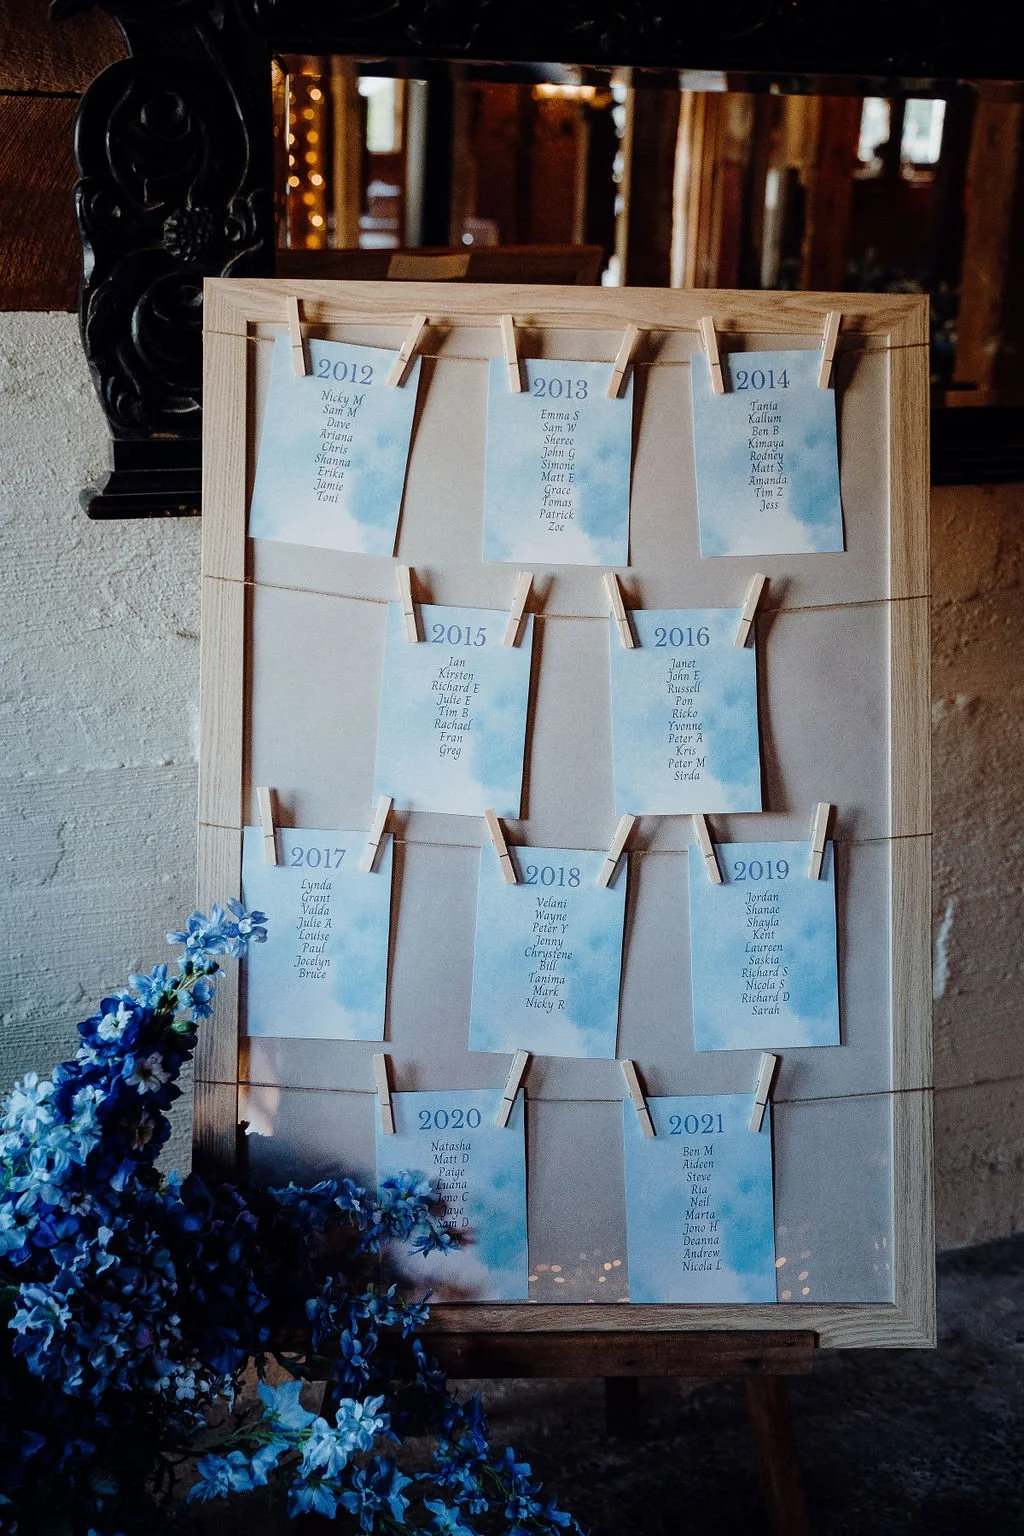 2012
Nicky M
Sam M
Dave
Ariana
Chris
Shanna
Erika
Jamie
Toni
2013
Emma S
Sam W
Sheree
John G
Simone
Matt E
Grace
Tomas
Patrick
Zoe
2014
Tania
Kallum
Ben B
Kimaya
Rodney
Matt S
Amanda
Tim Z
Jess
2015
Ian
Kirsten
Richard E
Julie E
Tim B
Rachael
Fran
Greg
2016
Janet
John E
Russell
Pon
Ricko
Yvonne
Peter A
Kris
Peter M
Sirda
2017
Lynda
Grant
Valda
Julie A
Louise
Paul
Jocelyn
Bruce
2018
Velani
Wayne
Peter Y
Jenny
Chrystene
Bill
Tanima
Mark
Nicky R
2019
Jordan
Shanae
Shayla
Kent
Laureen
Saskia
Richard S
Nicola S
Richard D
Sarah
2020
Natasha
Matt D
Paige
Luana
Jono C
Jaye
Sam D
2021
Ben M
Aideen
Steve
Ria
Neil
Marta
Jono H
Deanna
Andrew
Nicola L